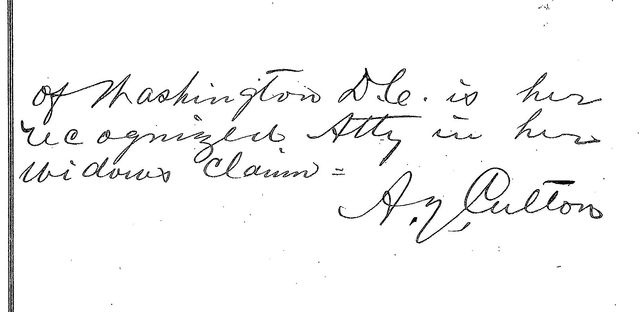 of Washington D.C. is her
recognized Atty in her
widows claim =
A. Y. Culton